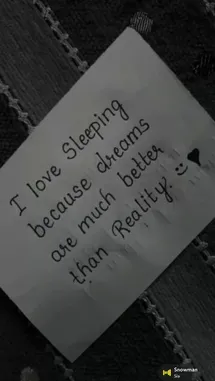 I love Sleeping
because dreams
are much better
than Reality.
Snowman